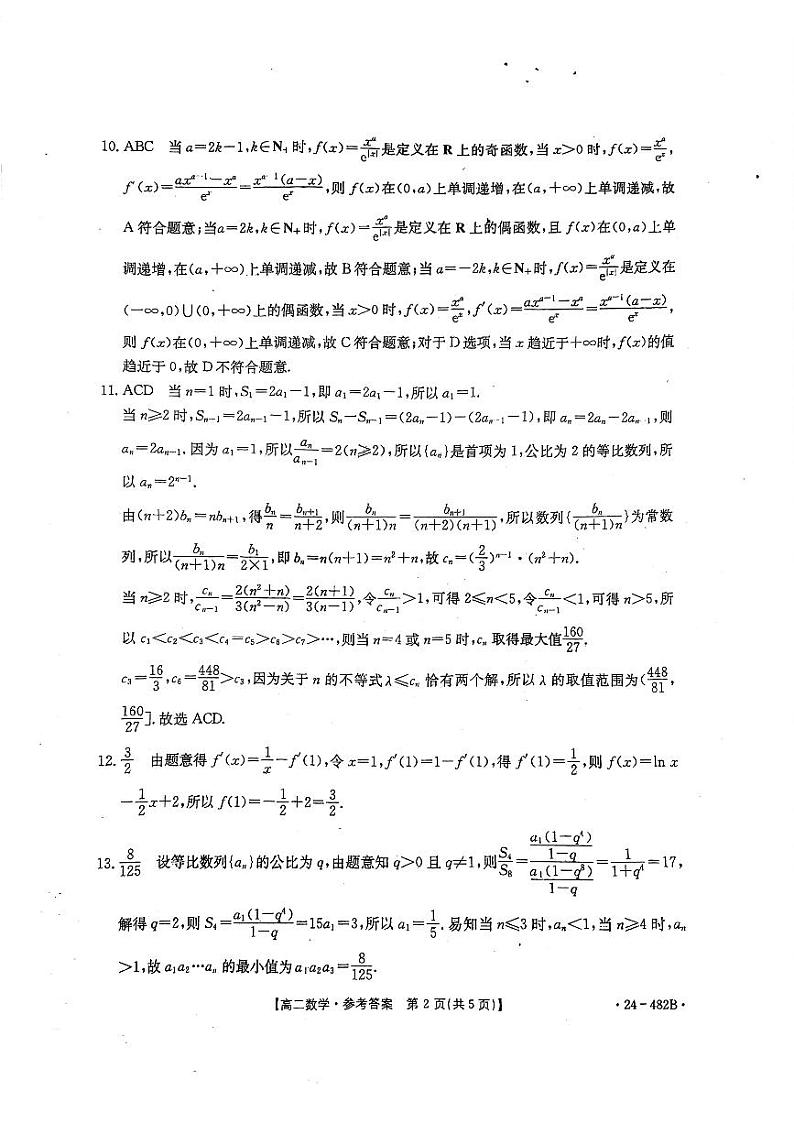 10. ABC 当 a=2k-1,k∈N₊ 时,f(x)=x^a/e^|x| 是定义在 R 上的奇函数,当 x>0 时,f(x)=x^a/e^x,
f′(x)=(ax^(a-1)-x^a)/e^x=x^(a-1)(a-x)/e^x,则 f(x)在(0,a)上单调递增,在(a,+∞)上单调递减,故
A 符合题意;当a=2k,k∈N₊时,f(x)=x^a/e^|x| 是定义在 R 上的偶函数,且 f(x)在(0,a)上单
调递增,在(a,+∞)上单调递减,故 B 符合题意;当 a=-2k,k∈N₊时,f(x)=x^a/e^|x| 是定义在
(-∞,0)∪(0,+∞)上的偶函数,当 x>0 时,f(x)=x^a/e^x,f′(x)=(ax^(a-1)-x^a)/e^x=x^(a-1)(a-x)/e^x,
则 f(x)在(0,+∞)上单调递减,故 C 符合题意;对于 D 选项,当 x 趋近于+∞时,f(x)的值
趋近于 0,故 D 不符合题意.
11. ACD 当 n=1 时,S₁=2a₁-1,即 a₁=2a₁-1,所以 a₁=1.
当 n≥2 时,Sₙ₋₁=2aₙ₋₁-1,所以 Sₙ-Sₙ₋₁=(2aₙ-1)-(2aₙ₋₁-1),即 aₙ=2aₙ-2aₙ₋₁,则
aₙ=2aₙ₋₁. 因为 a₁=1,所以 aₙ/aₙ₋₁=2(n≥2),所以{aₙ}是首项为 1,公比为 2 的等比数列,所
以 aₙ=2^(n-1).
由(n+2)bₙ=nbₙ₊₁,得 bₙ/n=bₙ₊₁/(n+2),则 bₙ/((n+1)n)=bₙ₊₁/((n+2)(n+1)),所以数列{bₙ/((n+1)n)}为常数
列,所以 bₙ/((n+1)n)=b₁/(2×1),即 bₙ=n(n+1)=n²+n,故 cₙ=(2/3)^(n-1)·(n²+n).
当 n≥2 时,cₙ/cₙ₋₁=2(n²+n)/3(n²-n)=2(n+1)/3(n-1),令 cₙ/cₙ₋₁>1,可得 2≤n<5,令 cₙ/cₙ₋₁<1,可得 n>5,所
以 c₁<c₂<c₃<c₄=c₅>c₆>c₇>…,则当 n=4 或 n=5 时,cₙ 取得最大值160/27.
c₃=16/3,c₆=448/81>c₃,因为关于 n 的不等式 λ≤cₙ 恰有两个解,所以 λ 的取值范围为(448/81,
160/27]. 故选 ACD.
12. 3/2 由题意得 f′(x)=1/x-f′(1),令 x=1,f′(1)=1-f′(1),得 f′(1)=1/2,则 f(x)=ln x
-1/2x+2,所以 f(1)=-1/2+2=3/2.
13. 8/125 设等比数列{aₙ}的公比为 q,由题意知 q>0 且 q≠1,则 S₄/S₈=(a₁(1-q⁴)/(1-q))/(a₁(1-q⁸)/(1-q))=1/(1+q⁴)=17,
解得 q=2,则 S₄=a₁(1-q⁴)/(1-q)=15a₁=3,所以 a₁=1/5. 易知当 n≤3 时,aₙ<1,当 n≥4 时,aₙ
>1,故 a₁a₂…aₙ 的最小值为 a₁a₂a₃=8/125.
【高二数学·参考答案 第 2 页(共 5 页)】 ·24-482B·